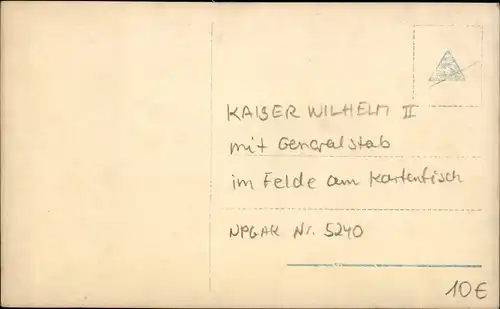 KAISER WILHELM II
mit Generalstab
im Felde am Kartentisch
NPGAK Nr. 5240
10€